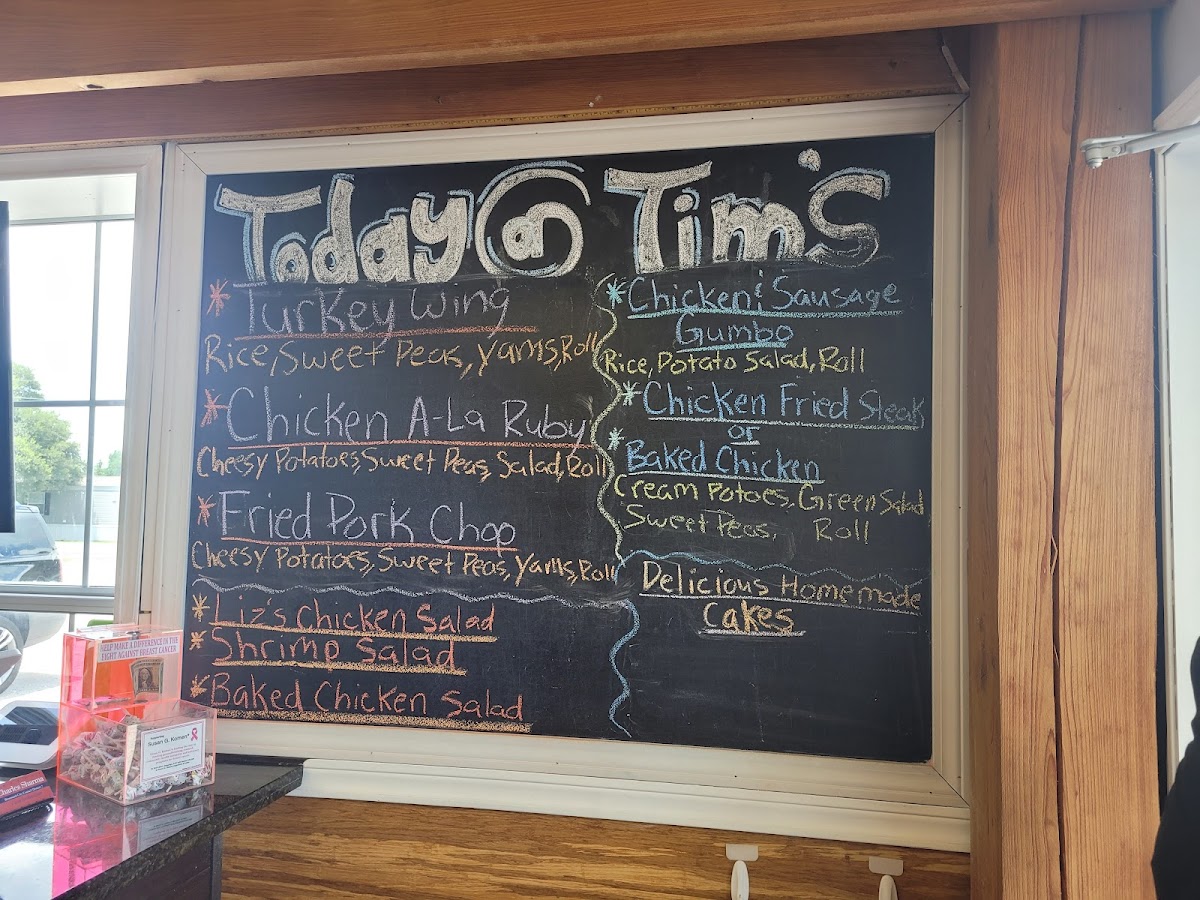 Today @ Tim's
* Turkey Wing
Rice, Sweet Peas, Yams, Roll
* Chicken A-La Ruby
Cheesy Potatoes, Sweet Peas, Salad, Roll
* Fried Pork Chop
Cheesy Potatoes, Sweet Peas, Yams, Roll
* Liz's Chicken Salad
* Shrimp Salad
* Baked Chicken Salad
* Chicken & Sausage
Gumbo
Rice, Potato Salad, Roll
* Chicken Fried Steak
or
* Baked Chicken
Cream Potoes, Green Salad
Sweet Peas, Roll
Delicious Homemade
Cakes
HELP MAKE A DIFFERENCE IN THE
FIGHT AGAINST BREAST CANCER
Susan G. Komen
Charles Sharma